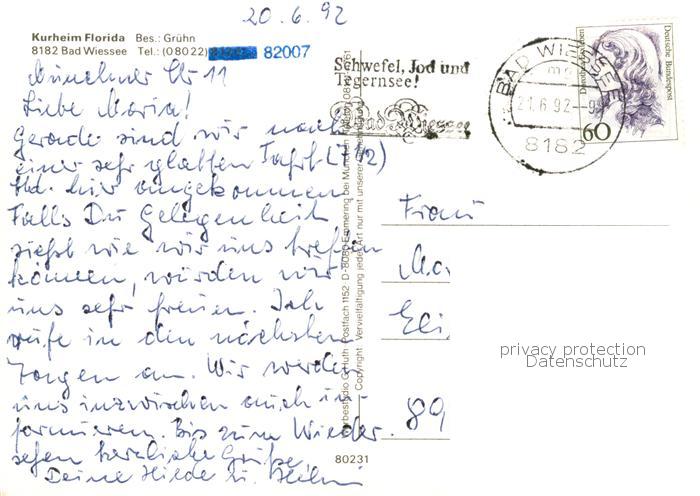 20.6.92
Kurheim Florida Bes.: Grühn
8182 Bad Wiessee Tel.: (08022) 82007
Münchner Str 11
Liebe Maria!
Gerade sind wir nach
einer sehr glatten Fahrt (7 1/2)
Std. hier angekommen
Falls Du Gelegenheit
siehst wie wir uns treffen
können, würden wir
uns sehr freuen. Ich
rufe in den nächsten
Tagen an. Wir werden
uns inzwischen auch in
formieren. Bis zum Wieder
sehen herzliche Grüße
Deine Hilde u.
Schwefel, Jod und
Tegernsee!
Bad Wiessee
BAD WIESSEE
21.6.92
8182
Dorothea Erxleben
Deutsche Bundespost
60
Postfach 1152 D-8089 Emmering bei München
Copyright Vervielfältigung jeder Art nur mit unserer
Frau
Ma
Eli
89
80231
privacy protection
Datenschutz